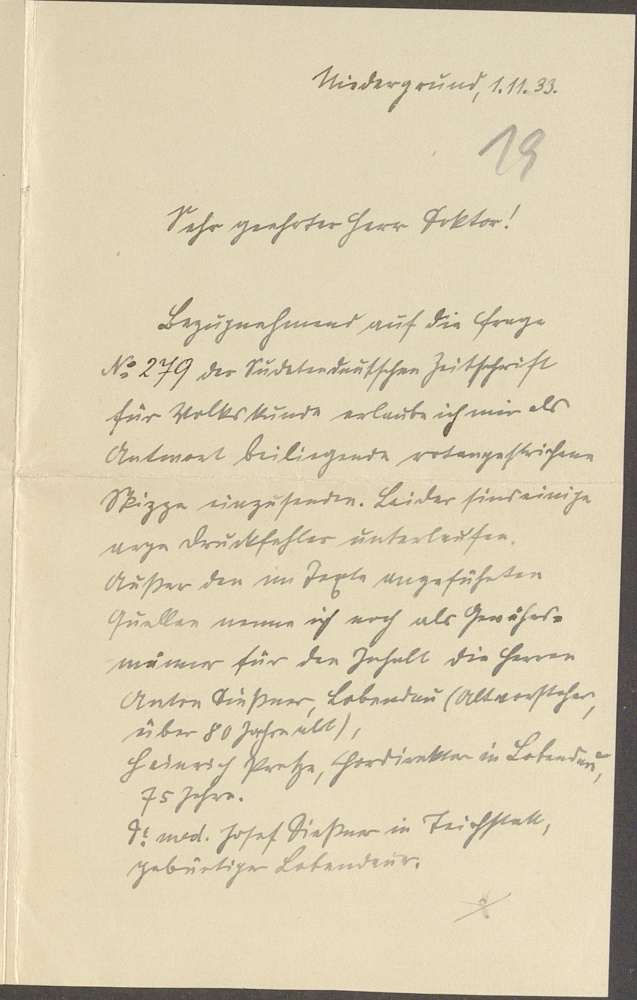 Niedergrund, 1.11.33.
19
Sehr geehrter Herr Doktor!
Bezugnehmend auf die Frage
No 279 der Sudetendeutschen Zeitschrift
für Volkskunde erlaube ich mir als
Antwort beiliegende rotangestrichene
Skizze einzusenden. Leider sind einige
arge Druckfehler unterlaufen.
Außer den im Texte angeführten
Quellen nenne ich noch als Gewährs-
männer für den Inhalt die Herren
Anton Dießner, Lobendau (Altvorsteher,
über 80 Jahre alt),
Heinrich Pretze, Chordirektor in Lobendau,
75 Jahre.
Dr. med. Josef Dießner in Teichstatt,
gebürtiger Lobendauer.